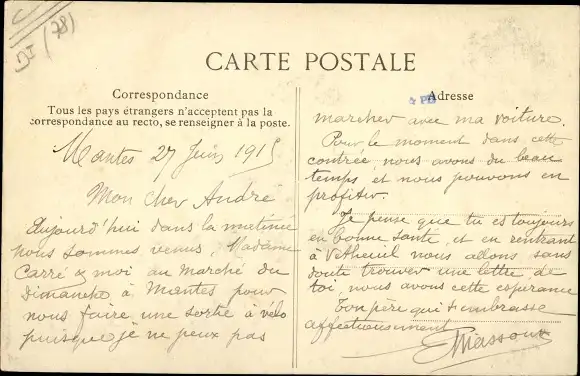 DI (78)
CARTE POSTALE
Correspondance
Tous les pays étrangers n'acceptent pas la
correspondance au recto, se renseigner à la poste.
Mantes 27 Juin 1915
Mon cher André
Aujourd'hui dans la matinée
nous sommes venus, Madame
Carré & moi au Marché du
Dimanche, à Mantes pour
nous faire une sortie à vélo
puisque je ne peux pas
Adresse
marcher avec ma voiture.
Pour le moment dans cette
contrée, nous avons du beau
temps et nous pouvons en
profiter.
Je pense que tu es toujours
en bonne santé, et en rentrant
à Vetheuil nous allons sans
doute trouver une lettre de
toi, nous avons cette espérance
Ton père qui t'embrasse
affectueusement
EMassoux